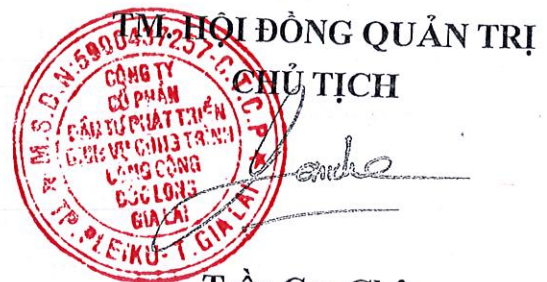 TM. HỘI ĐỒNG QUẢN TRỊ
CHỦ TỊCH
M.S.D.N:5900437257-C.T.C.P
CÔNG TY
CỔ PHẦN
ĐẦU TƯ PHÁT TRIỂN
DỊCH VỤ CÔNG TRÌNH
CÔNG CỘNG
ĐỨC LONG
GIA LAI
TP. PLEIKU - T. GIA LAI